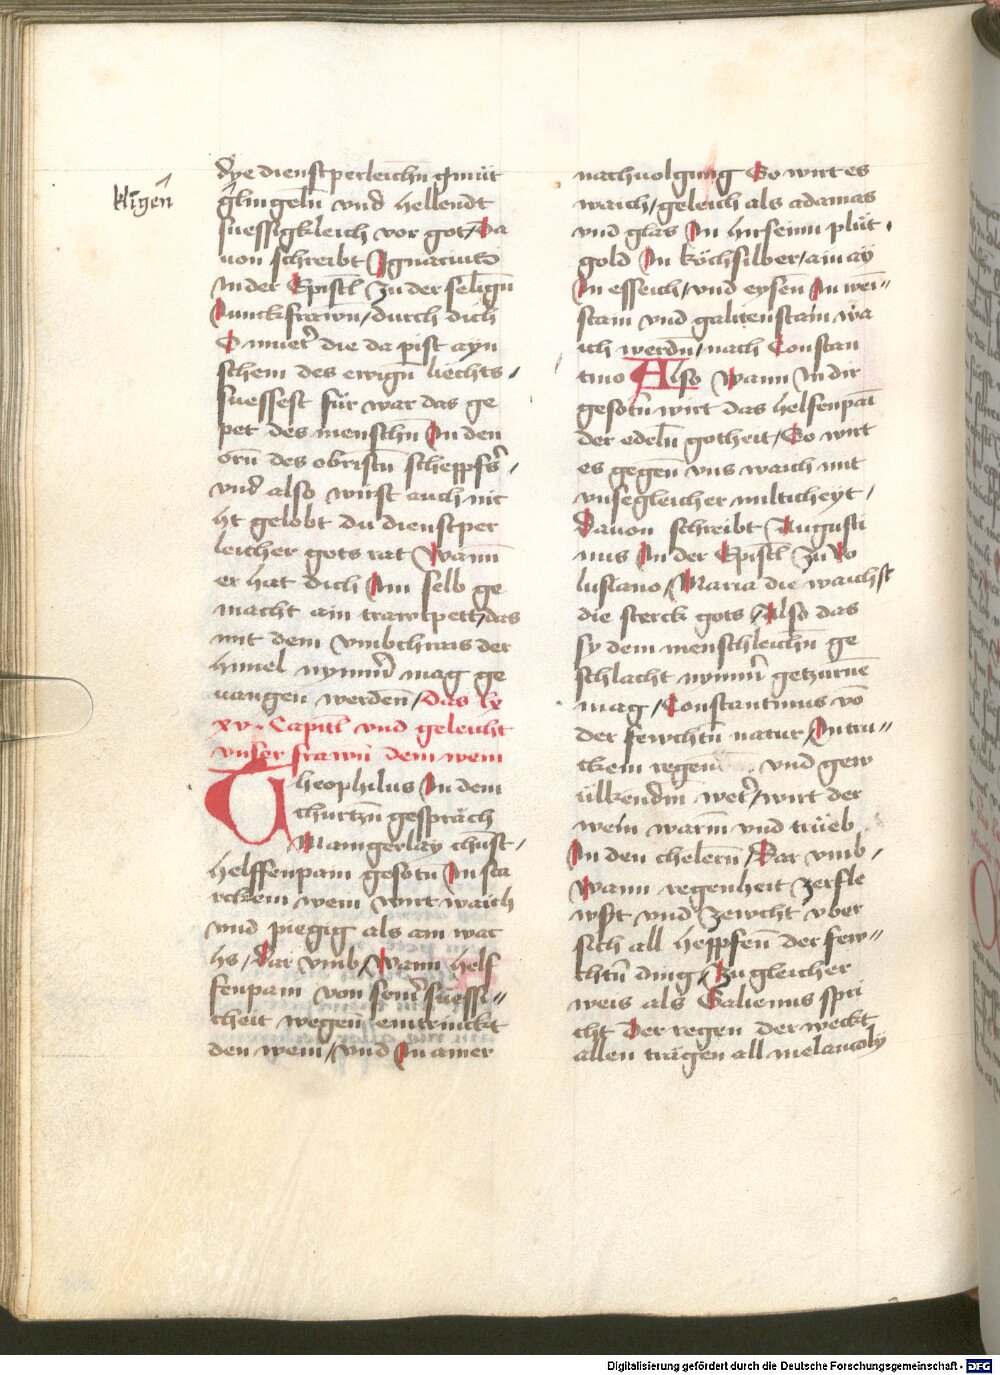 klīgen̄
dye dienstperleichn̄ gmüt
glingeln̄ vnd hellendt
suessigkleich vor got / Da
uon schreibt Ignacius
In der Epistl zu der selign̄
Junckfrawn̄ / durch dich
O mueter die da pist ayn
schein des ewign̄ liechts /
suessest für war das ge
pet des menschn̄ In den
orn̄ des obristn̄ scheppfers /
vnd also wirst auch nic
ht gelobt du dienstper
leicher gots rat Wann̄
er hat dich Im selb ge
macht ain trawtpett / das
mit dem vmbchrais der
himel nymmer mag ge
uangen werden̄ / Das lx
xv. Capitl vnd geleicht
vnser frawn̄ dem wein
Theophilus In dem
churtzn̄ gespräch
Manigerlay chunst /
helffenpain gesotn̄ In sta
rckem wein wirt waich
vnd piegig als ain wac
hs / Dar vmb / Wann helf
fenpain von seiner suessi=
cheit wegen̄ eintrinckt
den wein / Vnd In ainer
nachuolgung So wirt es
waich / geleich als adamas
vnd glas In hirseinm plüt .
gold In köchsilber / ain aÿ
In esseich / vnd eysen̄ In wei=
stain vnd galitenstain wa
ich werdn̄ / nach Constan
tino Also Wann In dir
gesotn̄ wirt das helfenpai
der edeln̄ gotheit / So wirt
es gegen̄ vns waich mit
vnsegleicher milticheyt /
Dauon schreibt Augusti
nus In der Epistl Zu Vo
lusiano / Maria die waichst
die sterck gots / Also das
sy dem menschleichn̄ ge
schlacht nymmer getzurnē
mag / Constantinus vō
der fewchtn̄ natur / In tru=
ckem regen vnd gew
ülkendm̄ weter / wirt der
wein warm̄ vnd trüeb
In den chelern̄ / Dar vmb /
Wann regenheit zerfle
wst vnd zewcht vber
sich all heppfen̄ der few=
chtn̄ ding / Zu gleicher
weis als Galienus spri
cht Der regen der weckt
allen trägen all melancoly
Digitalisierung gefördert durch die Deutsche Forschungsgemeinschaft - DFG